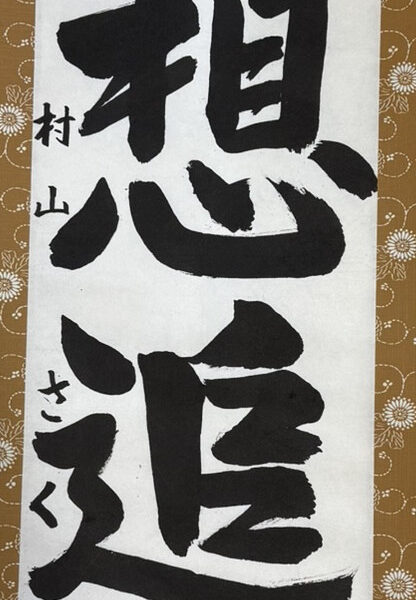 想追
村山さく